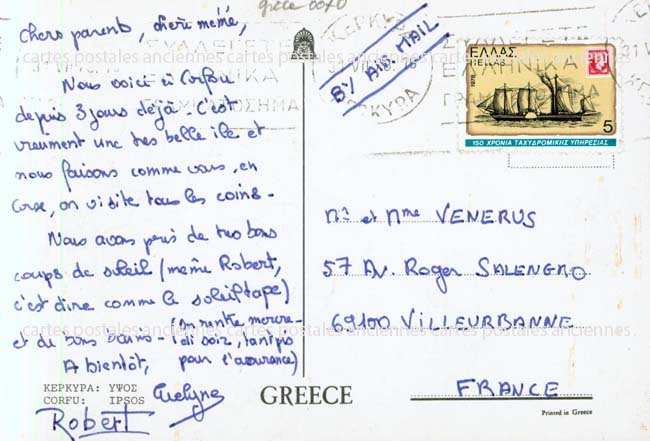 grèce 0070
Chers parents, chère mémé,
Nous voici à Corfou
depuis 3 jours déjà. C'est
vraiment une très belle île et
nous faisons comme vous, en
Corse, on visite tous les coins.
Nous avons pris de très bons
coups de soleil (même Robert,
c'est dire comme le soleil tape)
et de bons bains - (on rentre mercre-
di soir, tant pis
pour l'assurance)
A bientôt,
Evelyne
Robert
ΚΕΡΚΥΡΑ: ΥΨΟΣ
CORFU: IPSOS
GREECE
BY AIR MAIL
ΚΕΡΚΥΡΑ
ΣΥΛΛΕΓΕΤΕ
ΕΛΛΗΝΙΚΑ
ΓΡΑΜΜΑΤΟΣΗΜΑ
ΕΛΛΑΣ
HELLAS
1978
5
150 ΧΡΟΝΙΑ ΤΑΧΥΔΡΟΜΙΚΗΣ ΥΠΗΡΕΣΙΑΣ
Mr et Mme VENERUS
57 Av. Roger SALENGRO
69100 VILLEURBANNE
FRANCE
Printed in Greece
cartes postales anciennes cartes postales anciennes
cartes postales anciennes cartes postales anciennes